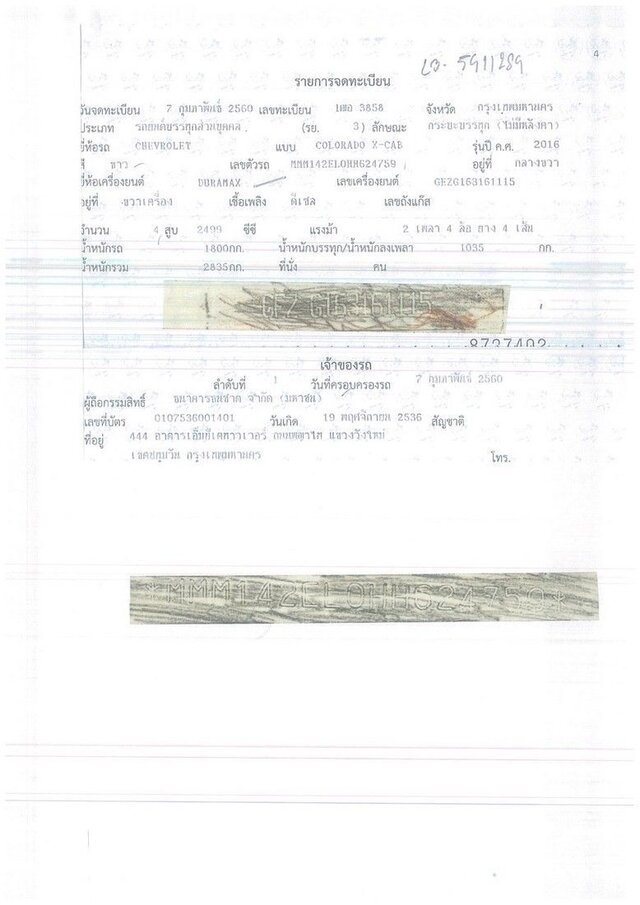 4
5911289
รายการจดทะเบียน
วันจดทะเบียน 7 กุมภาพันธ์ 2560 เลขทะเบียน 3858 จังหวัด กรุงเทพมหานคร
ประเภท รถยนต์บรรทุกส่วนบุคคล (รย. 3) ลักษณะ กระบะบรรทุก (ไม่มีหลังคา)
ยี่ห้อรถ CHEVROLET แบบ COLORADO X-CAB รุ่นปี ค.ศ. 2016
สี ขาว เลขตัวรถ MMM142EL0HH624759 อยู่ที่ กลางขวา
ยี่ห้อเครื่องยนต์ DURAMAX เลขเครื่องยนต์ GEZG163161115
อยู่ที่ ขวาเครื่อง เชื้อเพลิง ดีเซล เลขถังแก๊ส
จำนวน 4 สูบ 2499 ซีซี แรงม้า 2 เพลา 4 ล้อ ยาง 4 เส้น
น้ำหนักรถ 1800กก. น้ำหนักบรรทุก/น้ำหนักลงเพลา 1035 กก.
น้ำหนักรวม 2835กก. ที่นั่ง คน
GEZG163161115
8737402
เจ้าของรถ
ลำดับที่ 1 วันที่ครอบครองรถ 7 กุมภาพันธ์ 2560
ผู้ถือกรรมสิทธิ์ ธนาคารธนชาต จำกัด (มหาชน)
เลขที่บัตร 0107536001401 วันเกิด 19 พฤศจิกายน 2536 สัญชาติ
ที่อยู่ 444 อาคารเอ็มบีเคทาวเวอร์ ถนนพญาไท แขวงวังใหม่
เขตปทุมวัน กรุงเทพมหานคร โทร.
*MMM142EL0HH624759*